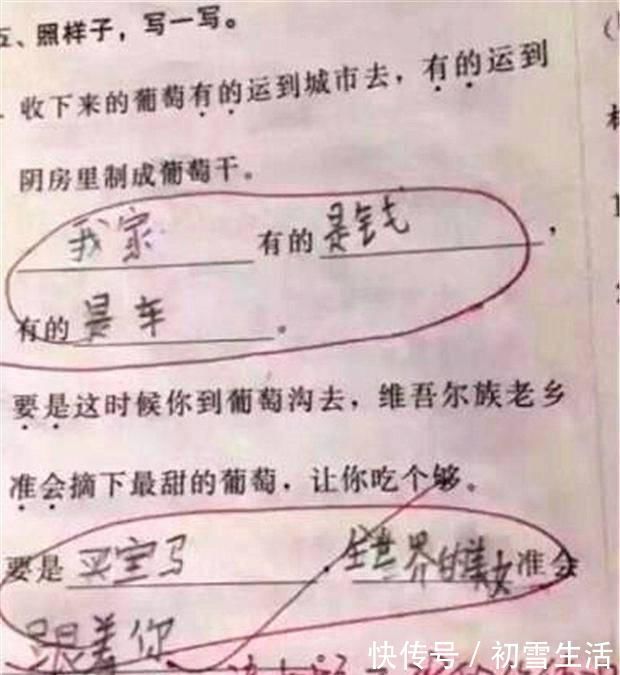 五、照样子，写一写。
收下来的葡萄有的运到城市去，有的运到
阴房里制成葡萄干。
我家有的是钱，
有的是车。
要是这时候你到葡萄沟去，维吾尔族老乡
准会摘下最甜的葡萄，让你吃个够。
要是买宝马，全世界的美女准会
跟着你
快传号／初雪生活